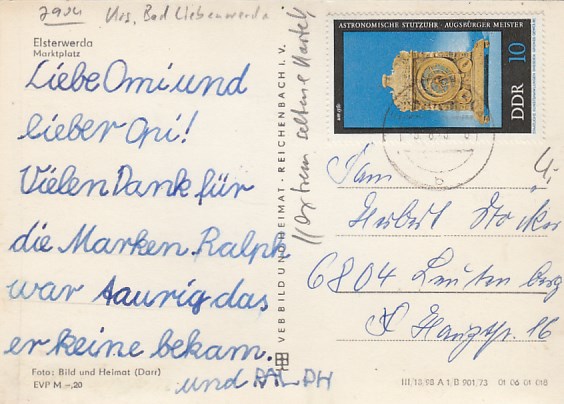 7904 Krs. Bad Liebenwerda
Elsterwerda
Marktplatz
Liebe Omi und
lieber Opi!
Vielen Dank für
die Marken. Ralph
war taurig das
er keine bekam.
und RALPH
Foto: Bild und Heimat (Darr)
EVP M –,20
VEB BILD UND HEIMAT · REICHENBACH i. V.
extrem seltene Karte
ASTRONOMISCHE STUTZUHR · AUGSBURGER MEISTER
um 1560
DDR 10
Fam
Herbert
6804 Lautenberg
Hauptstr. 16
III/18/98 A 1/B 901/73 01 06 01 018